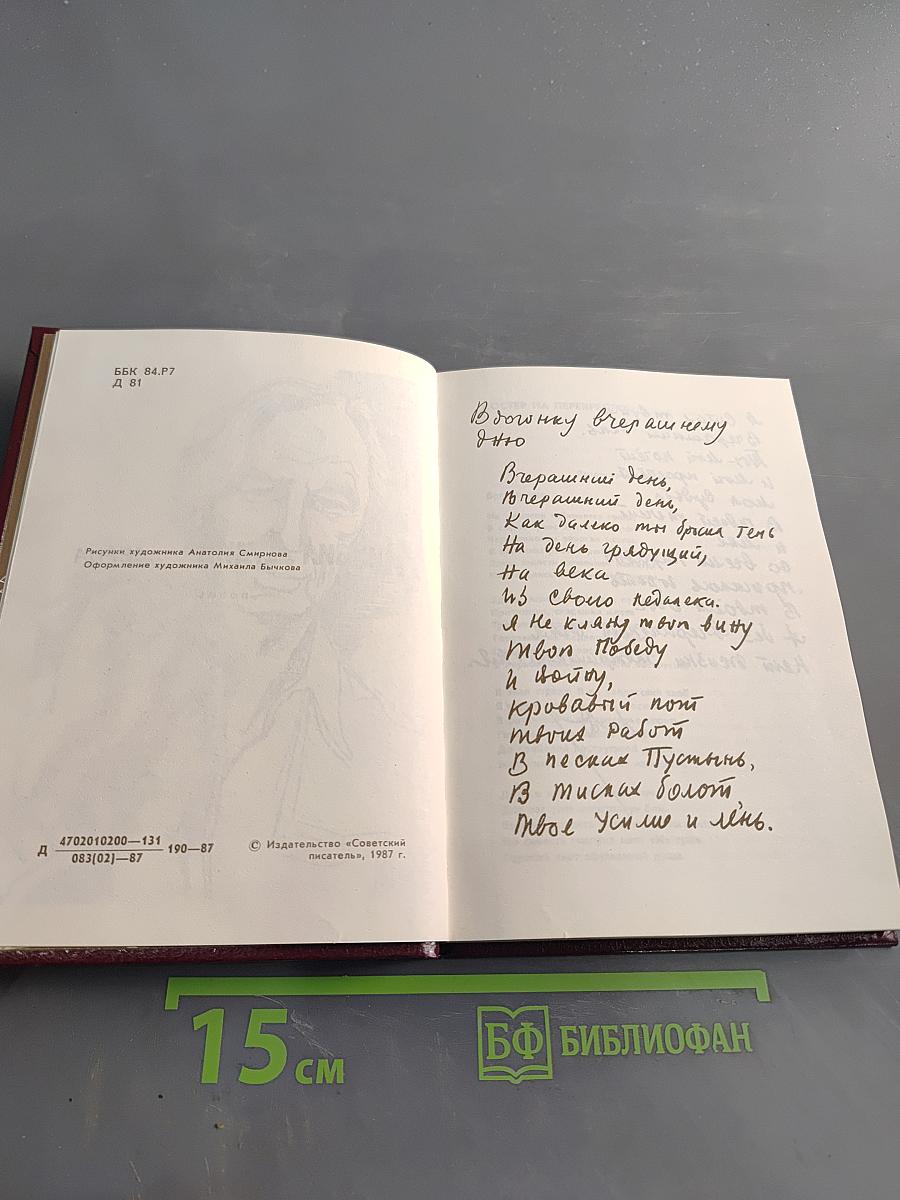 ББК 84.Р7
Д 81
Рисунки художника Анатолия Смирнова
Оформление художника Михаила Бычкова
Д 4702010200—131
083(02)—87
190—87
© Издательство «Советский
писатель», 1987 г.
Вдогонку вчерашнему
дню
Вчерашний день,
Вчерашний день,
Как далеко ты бросил тень
На день грядущий,
На века
Из своего недалека.
Я не кляну твою вину
Твою Победу
И войну,
Кровавый пот
Твоих работ
В песках Пустынь,
В тисках болот,
Твое усилие и лень.
15 см
БФ БИБЛИОФАН